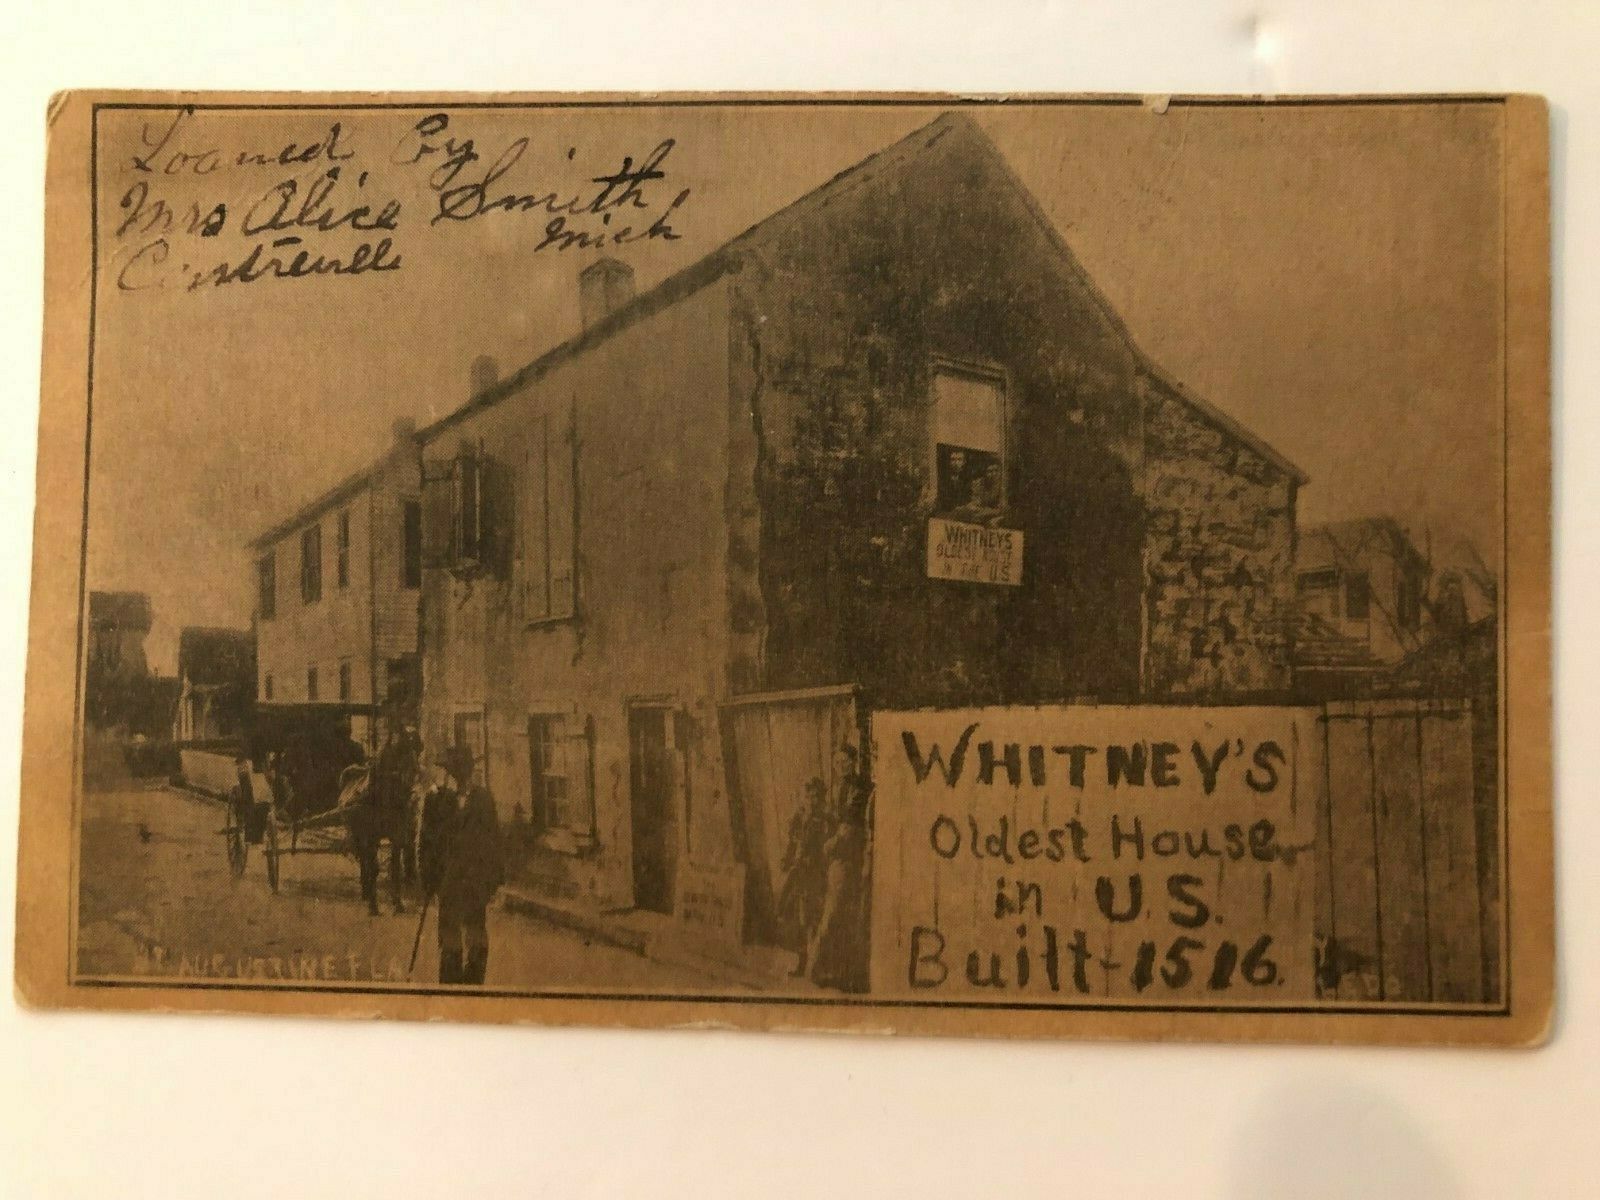 Loaned By
Mrs Alice Smith
Centreville Mich
WHITNEYS
OLDEST
IN THE U.S
WHITNEY'S
Oldest House
in U.S.
Built-1516.
ST. AUGUSTINE FLA